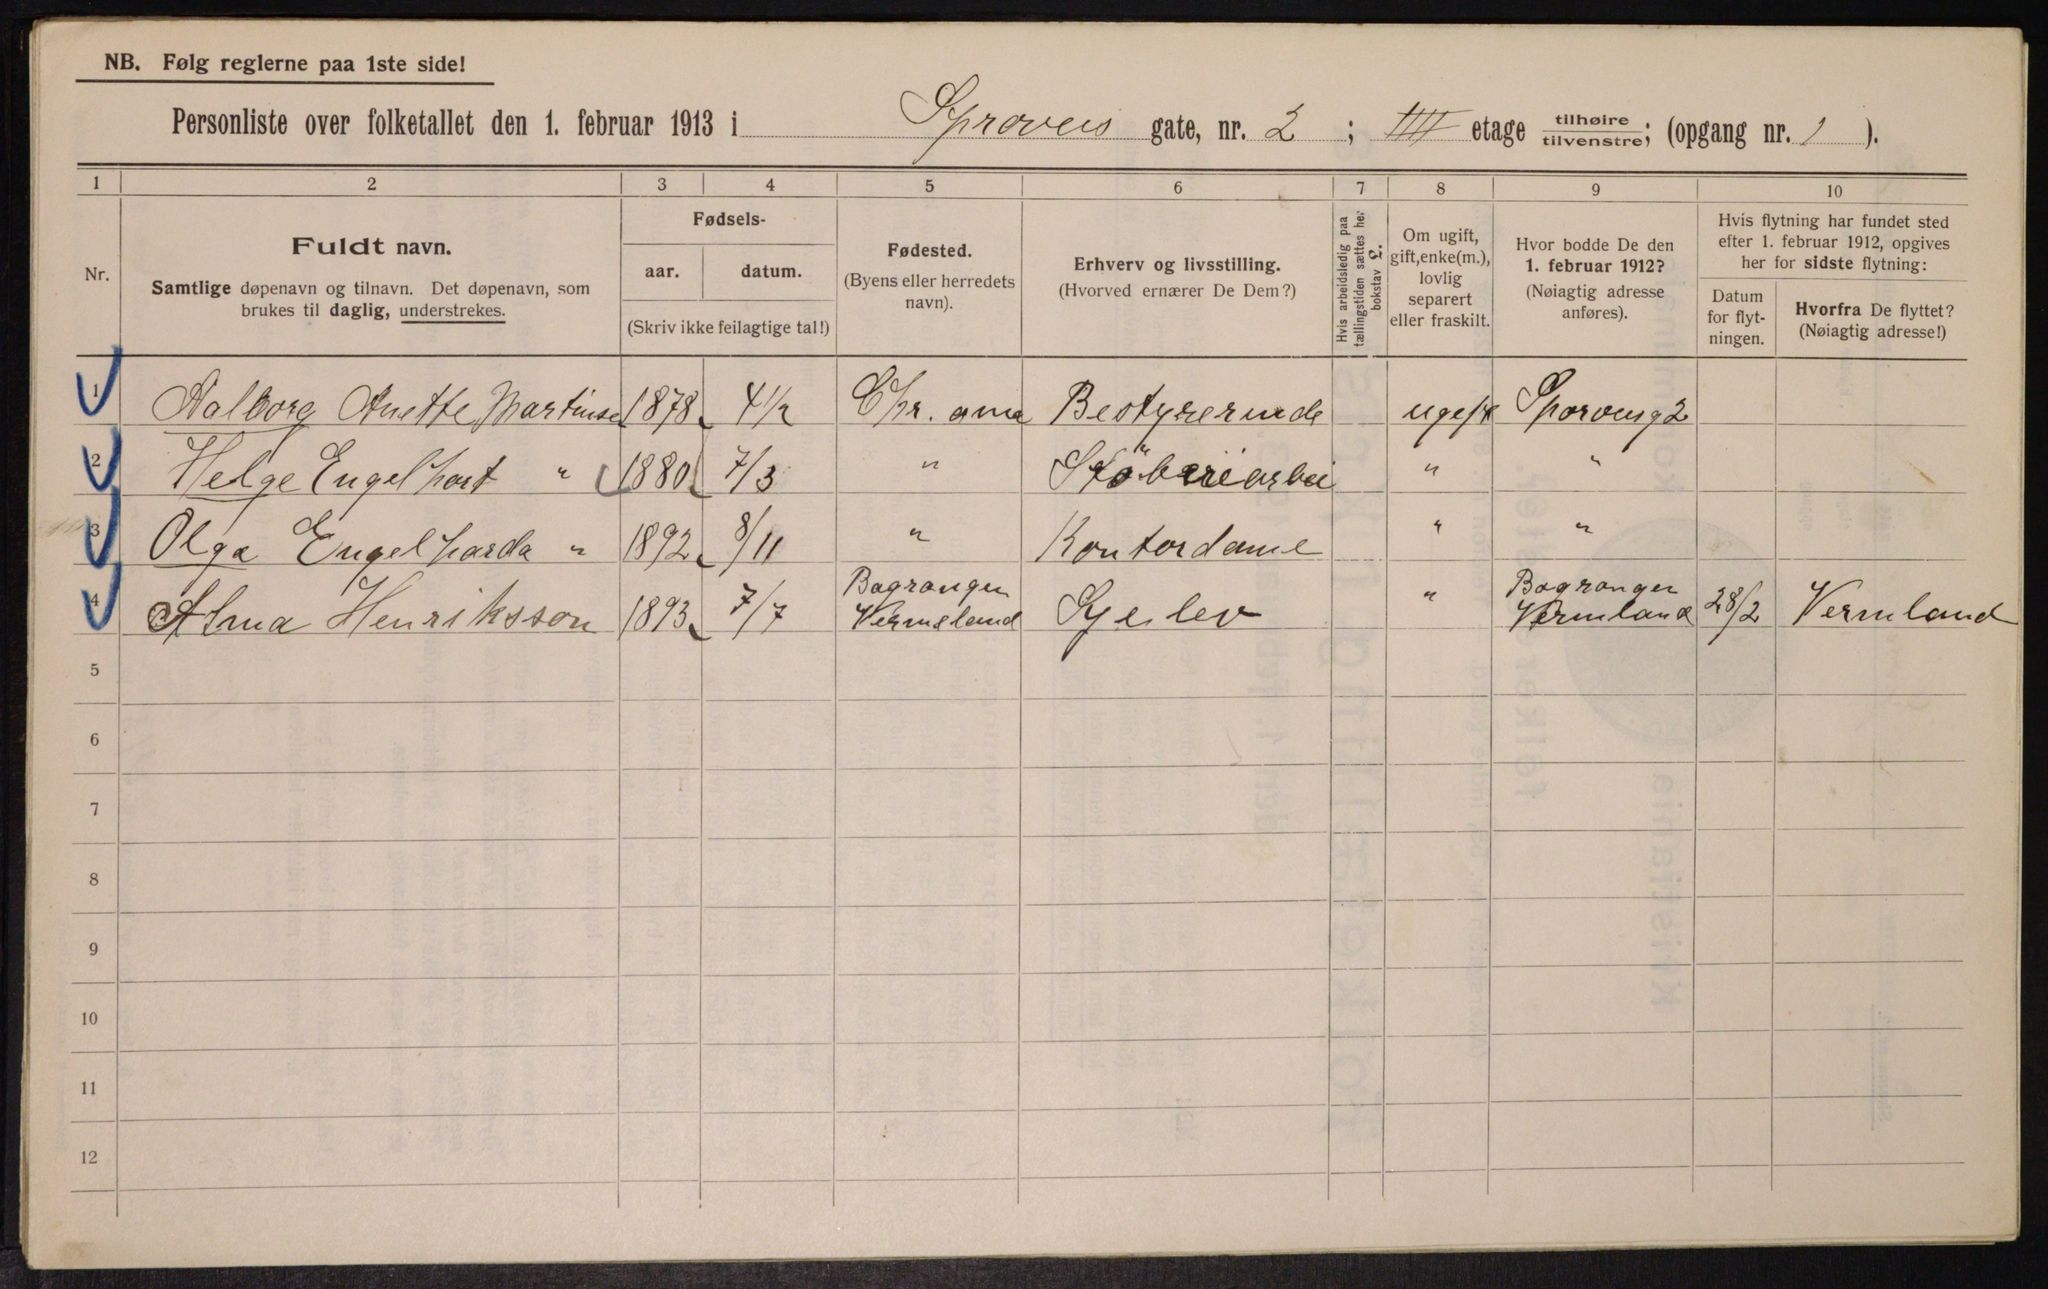 NB. Følg reglerne paa 1ste side!
Personliste over folketallet den 1. februar 1913 i Sproveis gate, nr. 2 ; IIII etage tilhøire tilvenstre; (opgang nr. 1 ).
1 2 3 4 5 6 7 8 9 10
Nr.
Fuldt navn.
Samtlige døpenavn og tilnavn. Det døpenavn, som
brukes til daglig, understrekes.
Fødsels-
aar. datum.
(Skriv ikke feilagtige tal!)
Fødested.
(Byens eller herredets
navn).
Erhverv og livsstilling.
(Hvorved ernærer De Dem?)
Hvis arbeidsledig paa
tællingstiden sættes her
bokstav l.
Om ugift,
gift, enke(m.),
lovlig
separert
eller fraskilt.
Hvor bodde De den
1. februar 1912?
(Nøiagtig adresse
anføres).
Hvis flytning har fundet sted
efter 1. februar 1912, opgives
her for sidste flytning:
Datum
for flyt-
ningen.
Hvorfra De flyttet?
(Nøiagtig adresse!)
1 Aalborg Anette Martinsen 1878 4/12 Chr. ania Bestyrerinde ugift Sporveisg 2
2 Helge Engelhart " 1880 7/3 " Støberiarbei " "
3 Olga Engelharda " 1892 8/11 " Kontordame " "
4 Alma Henriksson 1893 7/7 Bogranger Vermeland Syelev " Bogranger Vermland 28/2 Vermland
5
6
7
8
9
10
11
12